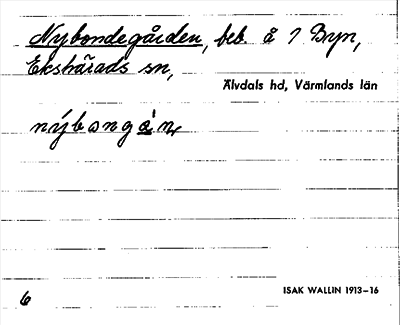 Nybondegården, beb. å 7 Byn,
Ekshärads sn,
Älvdals hd, Värmlands län
nýbongàn
ISAK WALLIN 1913–16
6